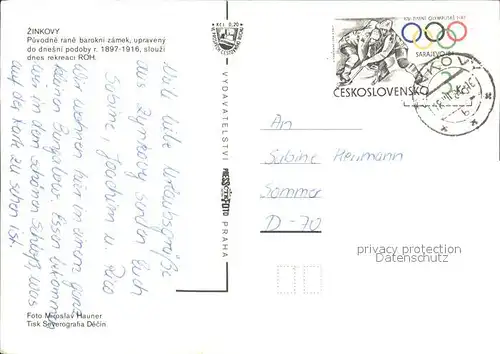 ŽINKOVY
Původně raně barokní zámek, upravený
do dnešní podoby r. 1897-1916, slouží
dnes rekreaci ROH.
Kčs 0,20
Viele liebe Urlaubsgrüße
aus Zinkovy senden Euch
Sabine, Joachim u.
Wir wohnen hier in einem ganz
kleinen Bungalow. Essen bekommen
wir in dem schönen Schloß, was
auf der Karte zu sehen ist.
Foto Miroslav Hauner
Tisk Severografia Děčín.
VYDAVATELSTVÍ
PRESSFOTO
PRAHA
XIV. ZIMNÍ OLYMPIJSKÉ HRY
SARAJEVO 84
ČESKOSLOVENSKO
An
Sabine Heumann
Sommer
D-70
privacy protection
Datenschutz